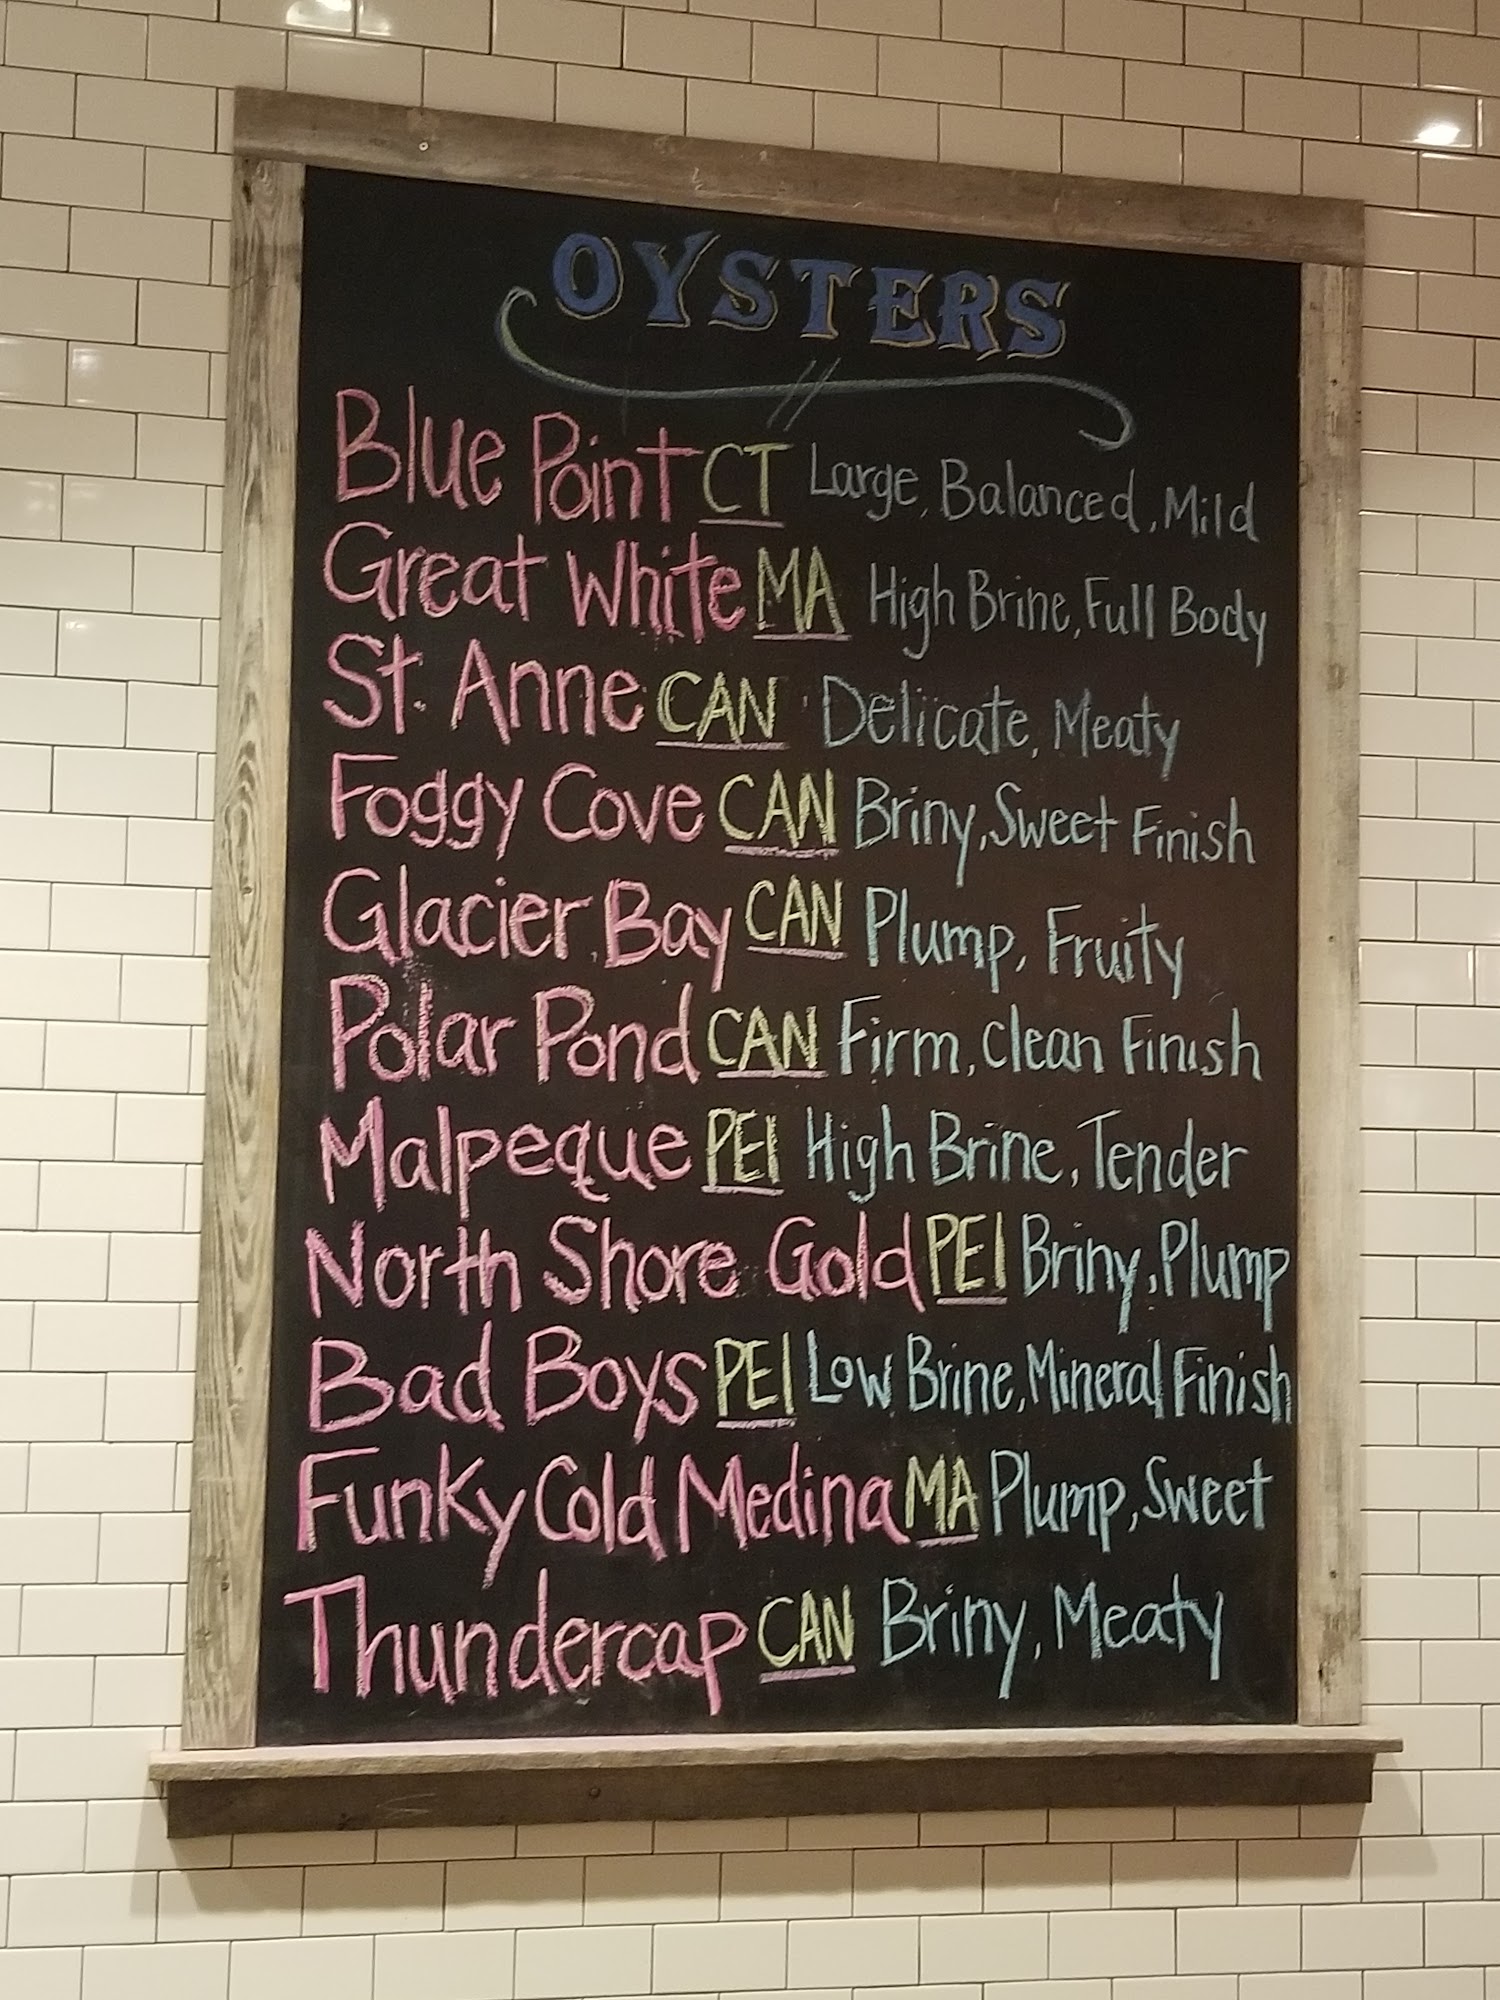 OYSTERS
Blue Point CT Large, Balanced, Mild
Great White MA High Brine, Full Body
St. Anne CAN Delicate, Meaty
Foggy Cove CAN Briny, Sweet Finish
Glacier Bay CAN Plump, Fruity
Polar Pond CAN Firm, Clean Finish
Malpeque PEI High Brine, Tender
North Shore Gold PEI Briny, Plump
Bad Boys PEI Low Brine, Mineral Finish
Funky Cold Medina MA Plump, Sweet
Thundercap CAN Briny, Meaty